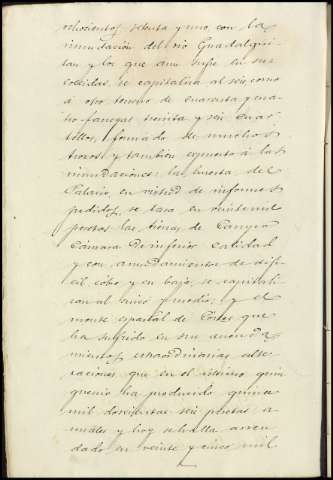 ochocientos setenta y uno con la
inundación del río Guadalqui-
vir y los que aun sufre en sus
collidas, se capitaliza al seis, como
á otro terreno de cuarenta y cua-
tro fanegas treinta y seis cuar-
tillos, formado de muchos
trozos y tambien espuesto á las
inundaciones; la huerta del
Palacio, en virtud de informes
pedidos, se tasa en veinte mil
pesetas; las tierras de Campo
Cámara de inferior calidad
y con arrendamientos de difi-
cil cobro y en baja, se capitali-
zan al cinco y medio; y el
monte espartal de Cortes que
ha sufrido en su arrenda-
miento extraordinarias alte-
raciones que en el último quin-
quenio ha producido quince
mil doscientas seis pesetas a-
nuales y hoy se halla arren-
dado en veinte y cinco mil